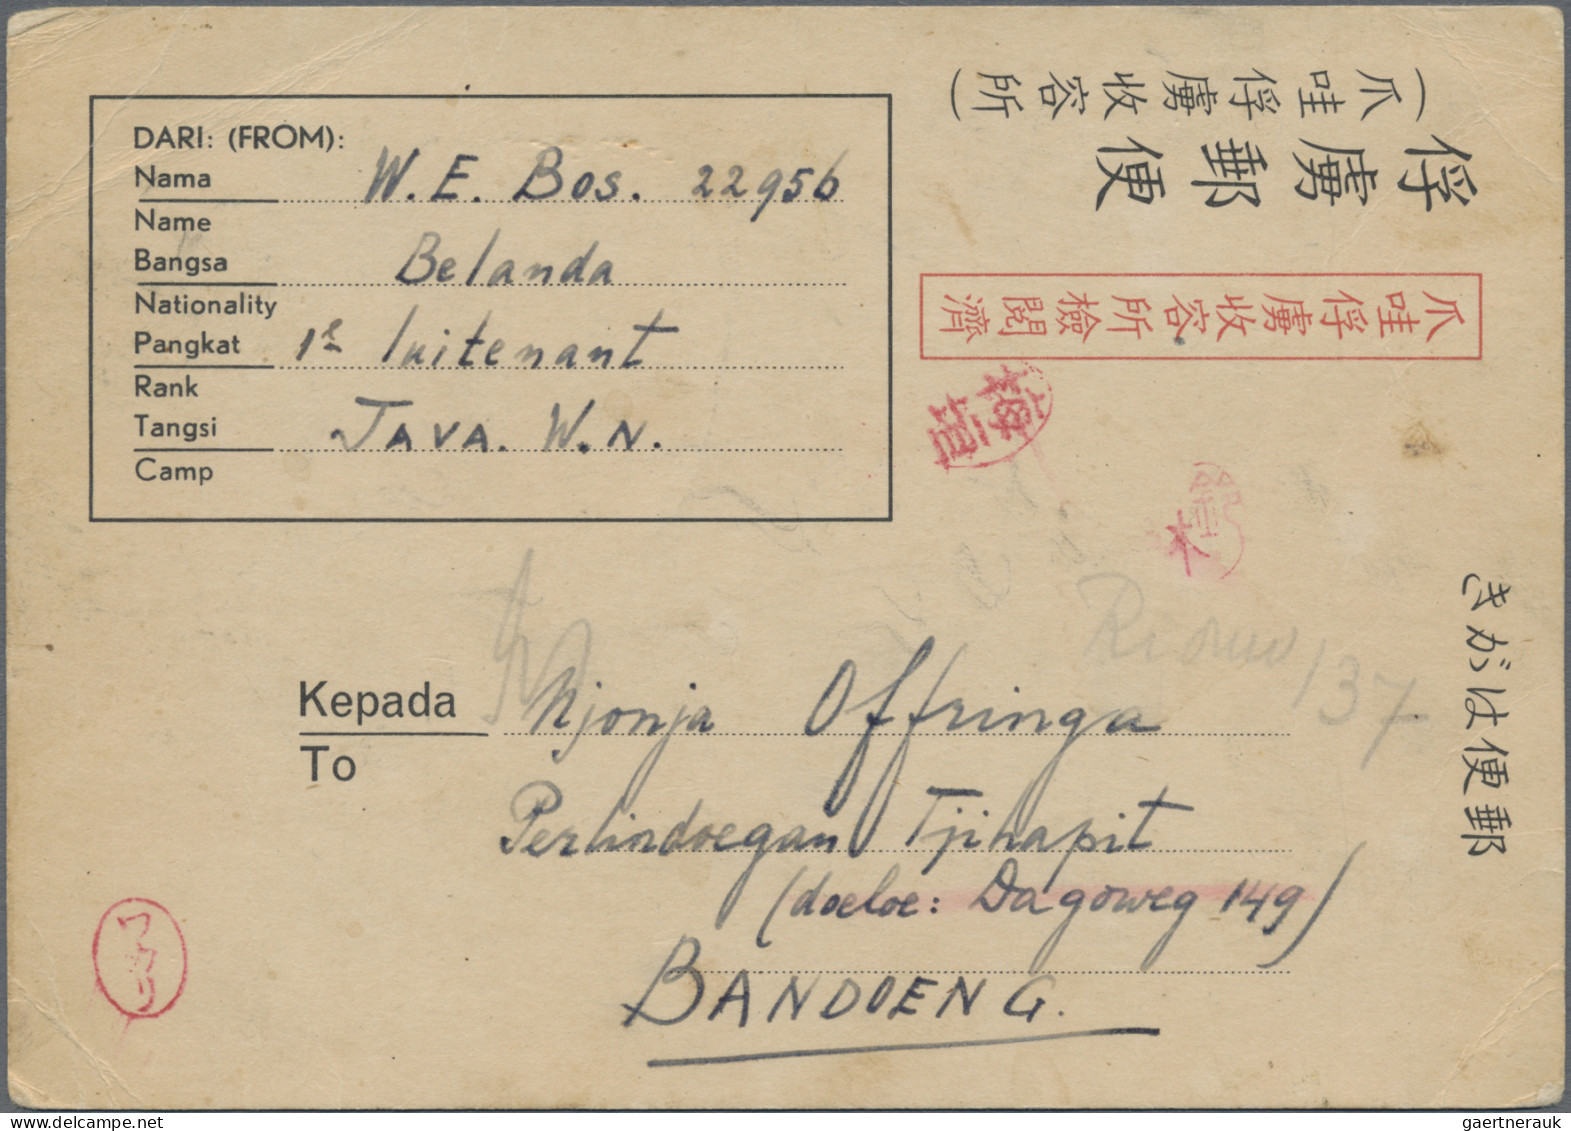 DARI: (FROM):
Nama W. E. Bos. 22956
Name
Bangsa Belanda
Nationality
Pangkat 1e luitenant
Rank
Tangsi JAVA. W.N.
Camp
(爪哇俘虜收容所)
俘虜郵便
爪哇俘虜收容所檢閱濟
きがは便郵
137
Kepada Njonja Offringa
To
Perlindoegan Tjihapit
(doeloe: Dagoweg 149)
BANDOENG.
gaertnerauk